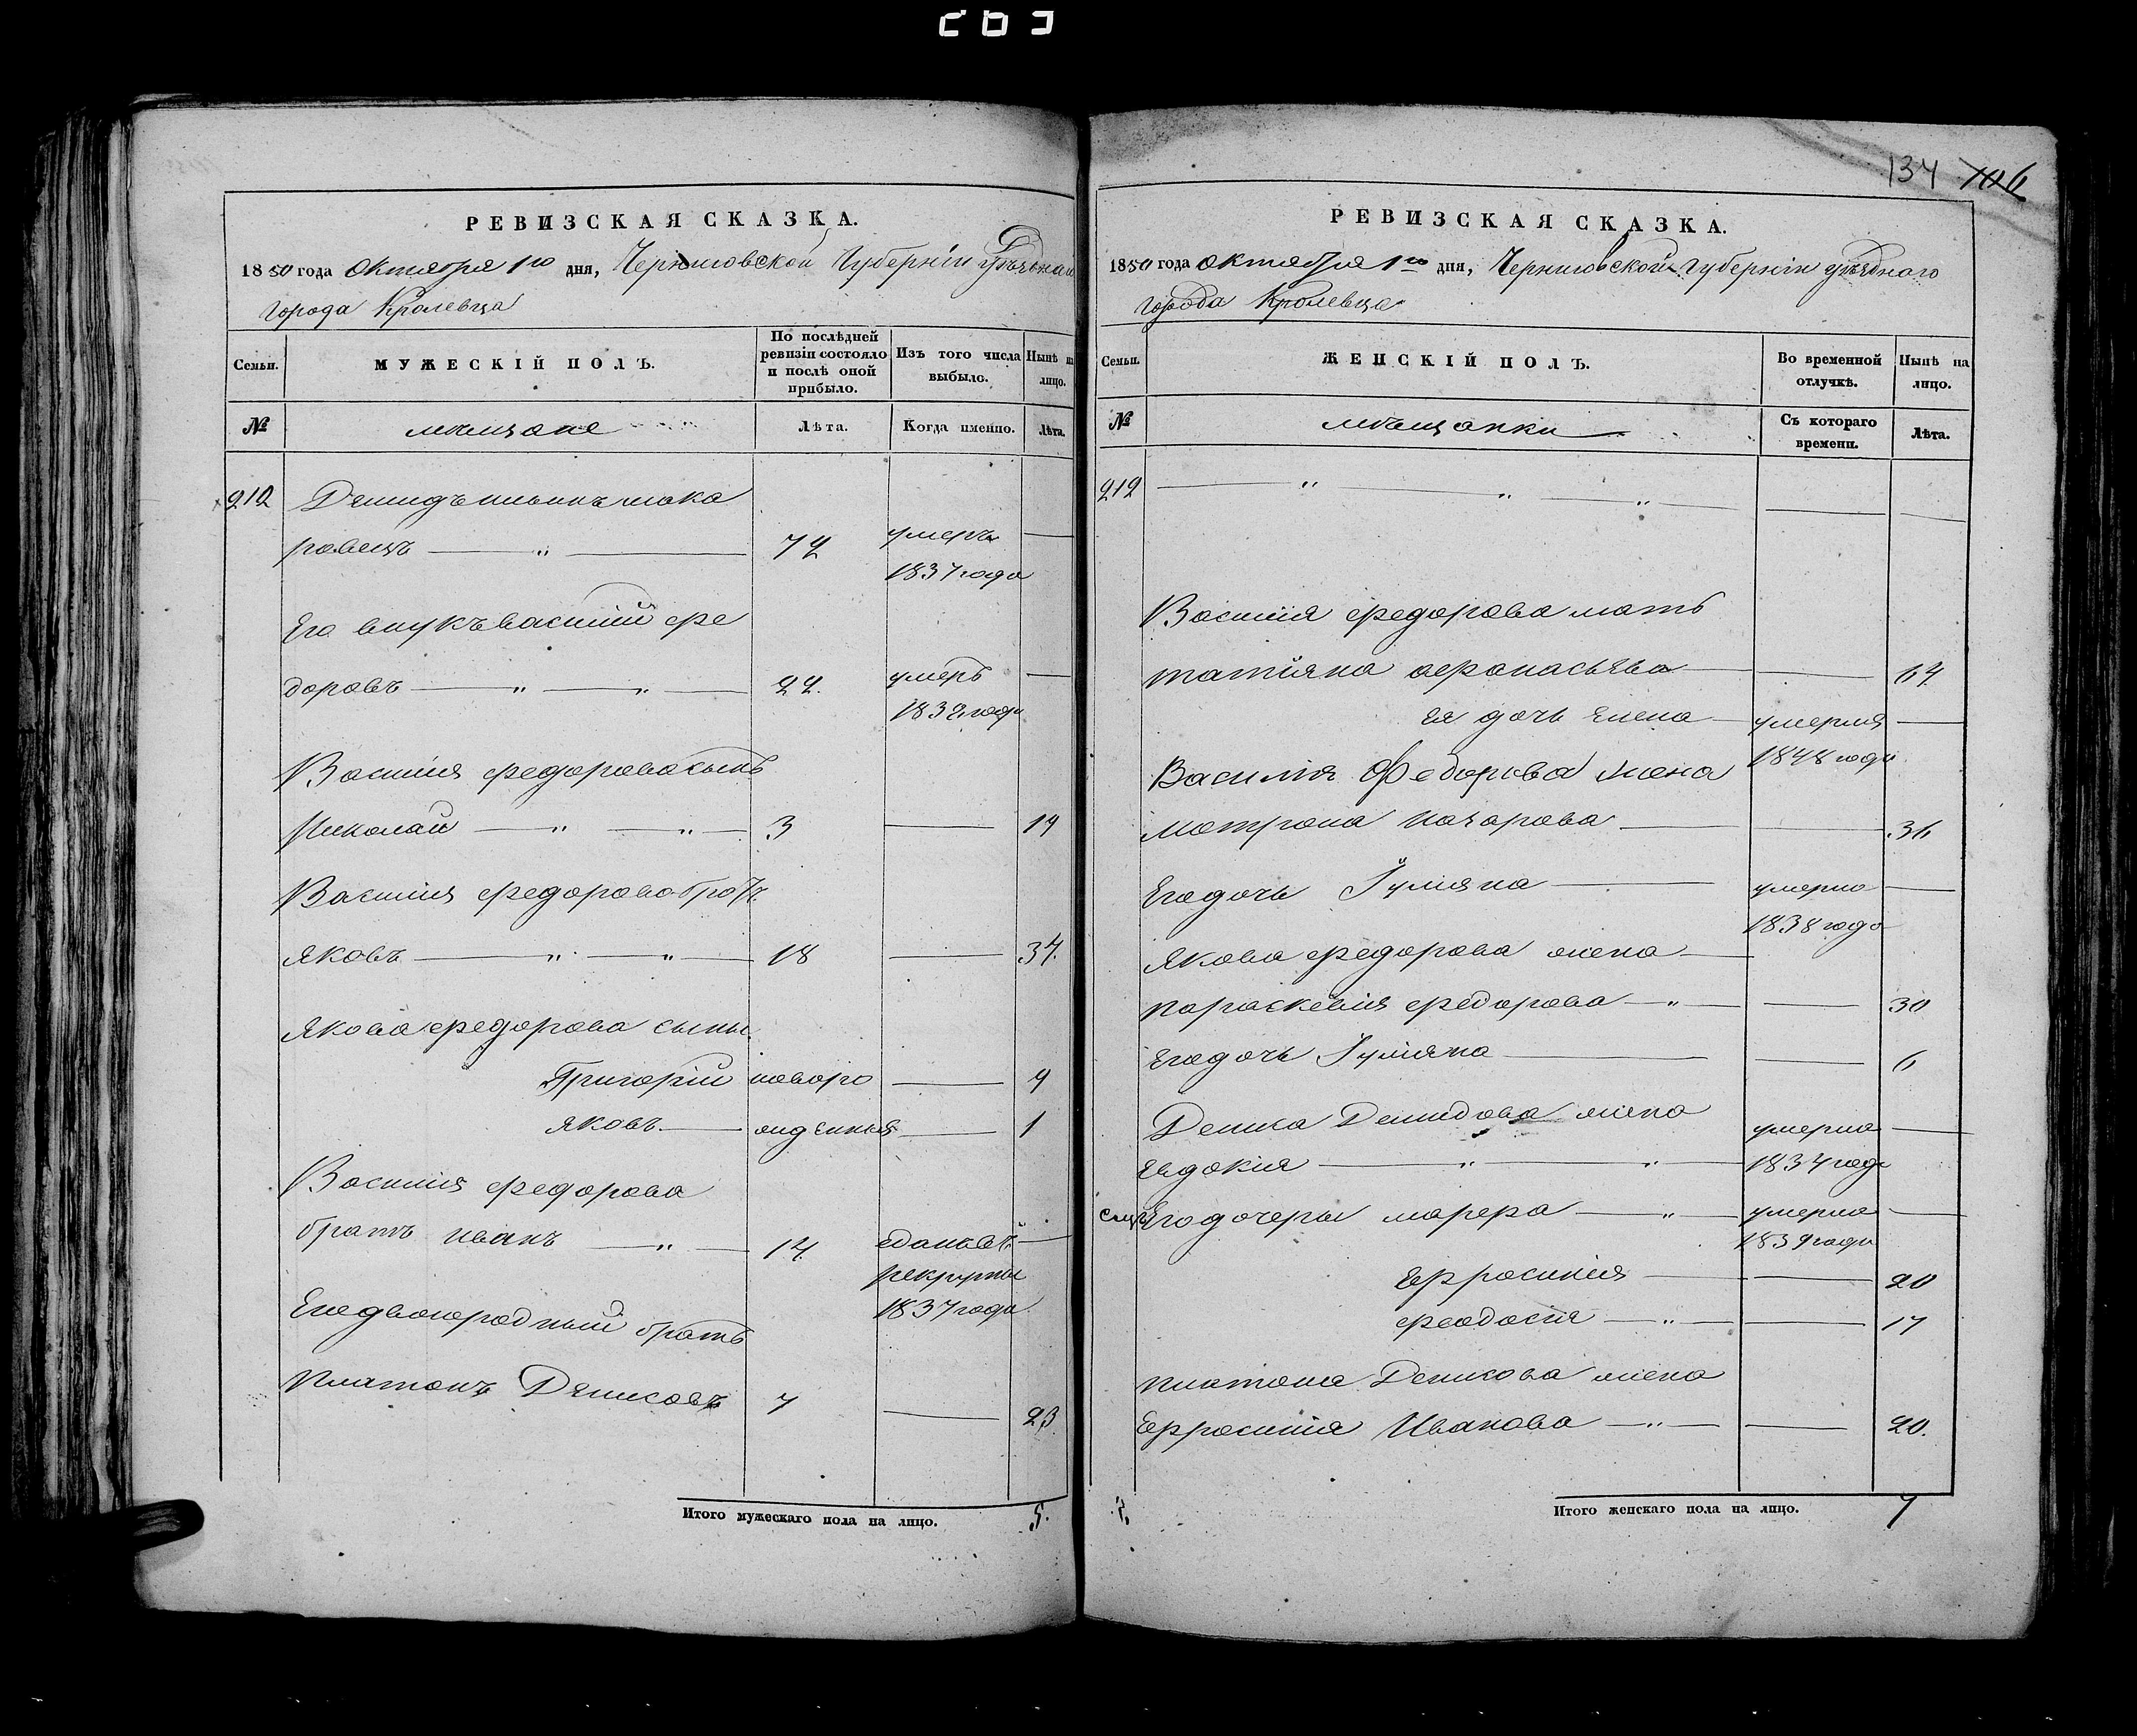 РЕВИЗСКАЯ СКАЗКА.
1850 года Октября 1го дня, Черниговской Губернiи уѣзднаго
города Кролевца
Семьи. МУЖЕСКIЙ ПОЛЪ. По послѣдней ревизiи состояло и послѣ оной прибыло. Изъ того числа выбыло. Нынѣ на лицо.
№ мѣщане Лѣта. Когда именно. Лѣта.
212 Демидъ мака
ровецъ — " — 74 умеръ —
1837 года
Его внукъ василiй фе
доровъ — " — " — 22. умеръ —
1832 года
Василiя федорова сынъ
Николай — " — " — 3 — 19
Василiя федорова братъ
яковъ — " — " — 18 — 34.
якова федорова сыны
Григорiй новоро — 4
яковъ — жденныя — 1
Василiя федорова
братъ иванъ — " — 14 сданъ въ —
рекруты
1837 года
Его двоюродный братъ
платонъ Денисовъ 7 — 23
Итого мужескаго пола на лицо. 5.
134 106
РЕВИЗСКАЯ СКАЗКА.
1850 года октября 1го дня, Черниговской Губернiи уѣзднаго
города Кролевца
Семьи. ЖЕНСКIЙ ПОЛЪ. Во временной отлучкѣ. Нынѣ на лицо.
№ мѣщанки Съ котораго времени. Лѣта.
212 — " — " — " — — —
Василiя федорова мать
татiяна афанасьева — — 64
ея дочь Елена — умерла —
1848 года
Василiя Федорова жена
матрона — — 36
Его дочь Iулiяна — умерла —
1838 года
якова федорова жена —
параскевiя федорова — " — — 30
Его дочь Iулiяна — — 6
Дениса Демидова жена умерла —
Евдокiя — " — " — 1834 года
Его дочеры марфа — " — умерла —
1839 года
Ефросинiя — — 20
феодосiя — " — — 17
платона Денисова жена
Ефросинiя Иванова — " — — 20.
Итого женскаго пола на лицо. 7